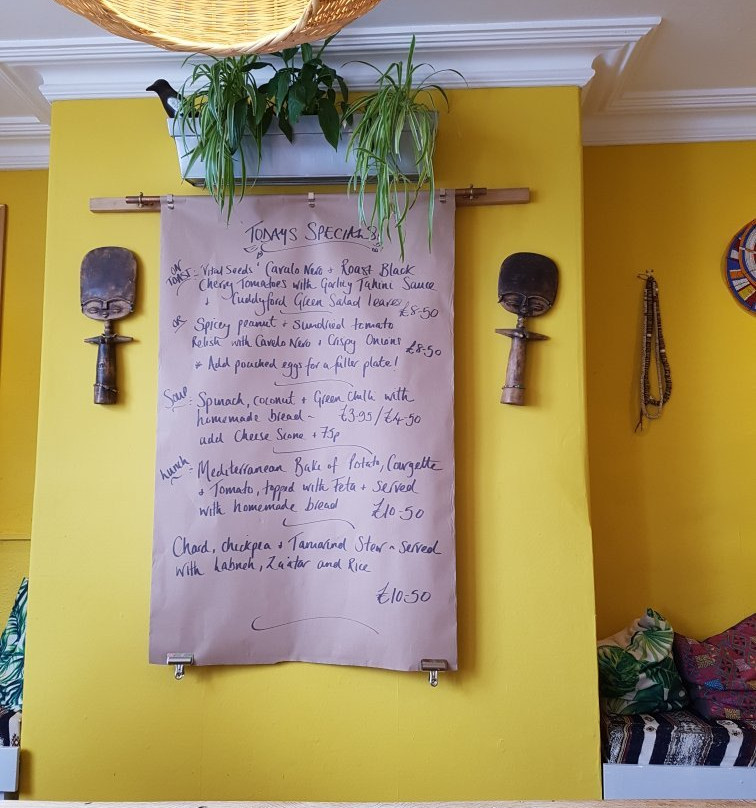 TODAYS SPECIALS
ON TOAST :- Vital Seeds' Cavalo Nero + Roast Black
Cherry Tomatoes with Garlicy Tahini Sauce
+ Cuddyford Green Salad leaves £8-50
OR Spicey peanut + Sundried tomato
Relish with Cavelo Nero + Crispy Onions £8-50
* Add poached eggs for a fuller plate!
Soup :- Spinach, coconut + Green Chilli with
homemade bread - £3.95/£4-50
add Cheese Scone + 75p
Lunch :- Mediterranean Bake of Potato, Courgette
+ Tomato, topped with Feta + served
with homemade bread £10-50
Chard, chickpea + Tamarind Stew - served
with Labneh, Za'atar and Rice
£10-50